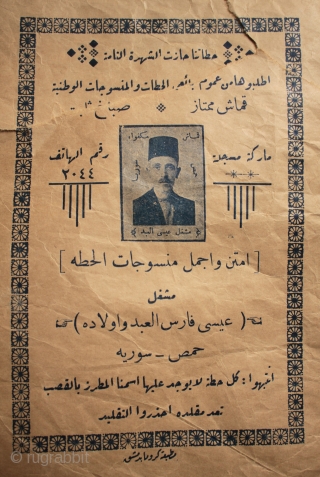 حطاتنا حازت الشهرة التامة
اطلبوها من عموم الحطات والمنسوجات الوطنية
قماش ممتاز * صباغ
ماركة مسجلة
رقم الهاتف
٢٠٤٤
مشغل عيسى العبد
[ امتن واجمل منسوجات الحطه ]
مشغل
( عيسى فارس العبد واولاده )
حمص - سوريه
انتبهوا : كل حطة لا يوجد عليها اسمنا المطرز بالقصب
تعد مقلده احذروا التقليد
مطبعة كرم بدمشق
© rugrabbit